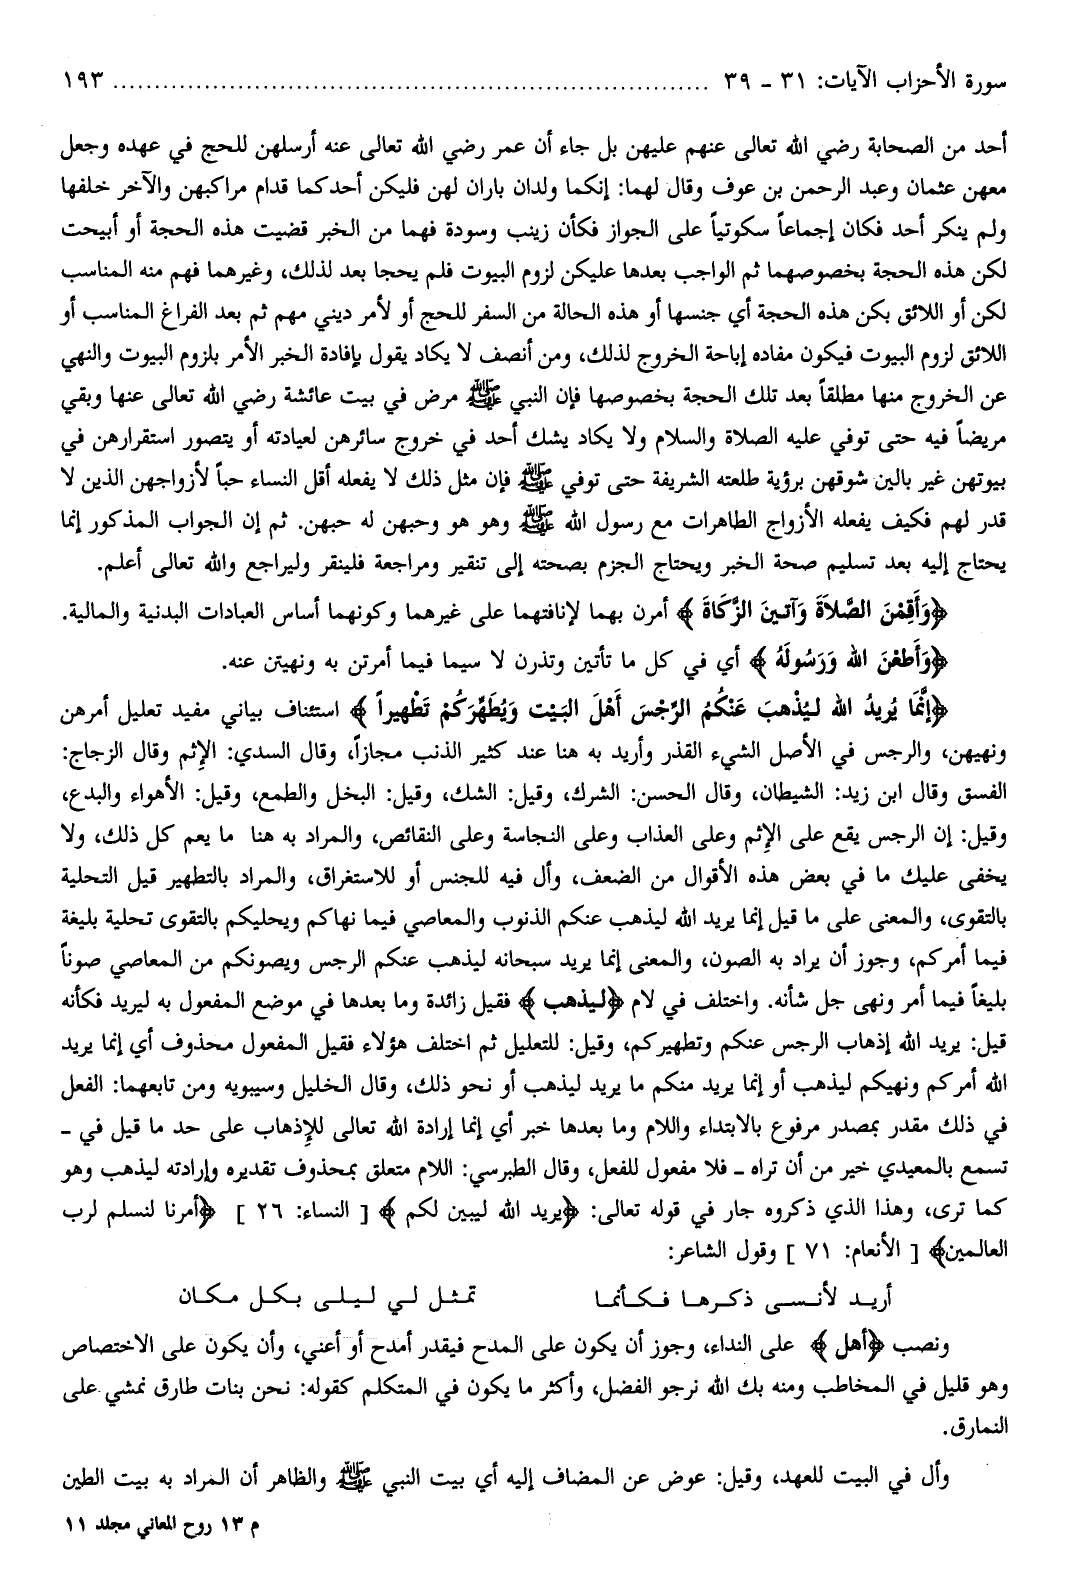 سورة الأحزاب الآيات: ٣١ ـ ٣٩ ........................................................................ ١٩٣
أحد من الصحابة رضي الله تعالى عنهم عليهن بل جاء أن عمر رضي الله تعالى عنه أرسلهن للحج في عهده وجعل
معهن عثمان وعبد الرحمن بن عوف وقال لهما: إنكما ولدان باران لهن فليكن أحدكما قدام مراكبهن والآخر خلفها
ولم ينكر أحد فكان إجماعاً سكوتياً على الجواز فكأن زينب وسودة فهما من الخبر قضيت هذه الحجة أو أبيحت
لكن هذه الحجة بخصوصهما ثم الواجب بعدها عليكن لزوم البيوت فلم يحجا بعد لذلك، وغيرهما فهم منه المناسب
لكن أو اللائق بكن هذه الحجة أي جنسها أو هذه الحالة من السفر للحج أو لأمر ديني مهم ثم بعد الفراغ المناسب أو
اللائق لزوم البيوت فيكون مفاده إباحة الخروج لذلك، ومن أنصف لا يكاد يقول بإفادة الخبر الأمر بلزوم البيوت والنهي
عن الخروج منها مطلقاً بعد تلك الحجة بخصوصها فإن النبي ﷺ مرض في بيت عائشة رضي الله تعالى عنها وبقي
مريضاً فيه حتى توفي عليه الصلاة والسلام ولا يكاد يشك أحد في خروج سائرهن لعيادته أو يتصور استقرارهن في
بيوتهن غير بالين شوقهن برؤية طلعته الشريفة حتى توفي ﷺ فإن مثل ذلك لا يفعله أقل النساء حباً لأزواجهن الذين لا
قدر لهم فكيف يفعله الأزواج الطاهرات مع رسول الله ﷺ وهو هو وحبهن له حبهن. ثم إن الجواب المذكور إنما
يحتاج إليه بعد تسليم صحة الخبر ويحتاج الجزم بصحته إلى تنقير ومراجعة فلينقر وليراجع والله تعالى أعلم.
﴿وَأَقِمْنَ الصَّلاَةَ وَآتينَ الزَّكَاةَ﴾ أمرن بهما لإنافتهما على غيرهما وكونهما أساس العبادات البدنية والمالية.
﴿وَأَطعْنَ الله وَرَسُولَهُ﴾ أي في كل ما تأتين وتذرن لا سيما فيما أمرتن به ونهيتن عنه.
﴿إنَّمَا يُريدُ الله ليُذْهبَ عَنْكُمُ الرِّجْسَ أَهْلَ البَيْت وَيُطَهِّرَكُمْ تَطْهيراً﴾ استئناف بياني مفيد تعليل أمرهن
ونهيهن، والرجس في الأصل الشيء القذر وأريد به هنا عند كثير الذنب مجازاً، وقال السدي: الإثم وقال الزجاج:
الفسق وقال ابن زيد: الشيطان، وقال الحسن: الشرك، وقيل: الشك، وقيل: البخل والطمع، وقيل: الأهواء والبدع،
وقيل: إن الرجس يقع على الإثم وعلى العذاب وعلى النجاسة وعلى النقائص، والمراد به هنا ما يعم كل ذلك، ولا
يخفى عليك ما في بعض هذه الأقوال من الضعف، وأل فيه للجنس أو للاستغراق، والمراد بالتطهير قيل التحلية
بالتقوى، والمعنى على ما قيل إنما يريد الله ليذهب عنكم الذنوب والمعاصي فيما نهاكم ويحليكم بالتقوى تحلية بليغة
فيما أمركم، وجوز أن يراد به الصون، والمعنى إنما يريد سبحانه ليذهب عنكم الرجس ويصونكم من المعاصي صوناً
بليغاً فيما أمر ونهى جل شأنه. واختلف في لام ﴿ليذهب﴾ فقيل زائدة وما بعدها في موضع المفعول به ليريد فكأنه
قيل: يريد الله إذهاب الرجس عنكم وتطهيركم، وقيل: للتعليل ثم اختلف هؤلاء فقيل المفعول محذوف أي إنما يريد
الله أمركم ونهيكم ليذهب أو إنما يريد منكم ما يريد ليذهب أو نحو ذلك، وقال الخليل وسيبويه ومن تابعهما: الفعل
في ذلك مقدر بمصدر مرفوع بالابتداء واللام وما بعدها خبر أي إنما إرادة الله تعالى للإذهاب على حد ما قيل في ـ
تسمع بالمعيدي خير من أن تراه ـ فلا مفعول للفعل، وقال الطبرسي: اللام متعلق بمحذوف تقديره وإرادته ليذهب وهو
كما ترى، وهذا الذي ذكروه جار في قوله تعالى: ﴿يريد الله ليبين لكم﴾ [ النساء: ٢٦ ] ﴿أمرنا لنسلم لرب
العالمين﴾ [ الأنعام: ٧١ ] وقول الشاعر:
أريد لأنسى ذكرها فكأنما تمثل لي ليلى بكل مكان
ونصب ﴿أهل﴾ على النداء، وجوز أن يكون على المدح فيقدر أمدح أو أعني، وأن يكون على الاختصاص
وهو قليل في المخاطب ومنه بك الله نرجو الفضل، وأكثر ما يكون في المتكلم كقوله: نحن بنات طارق نمشي على
النمارق.
وأل في البيت للعهد، وقيل: عوض عن المضاف إليه أي بيت النبي ﷺ والظاهر أن المراد به بيت الطين
م ١٣ روح المعاني مجلد ١١